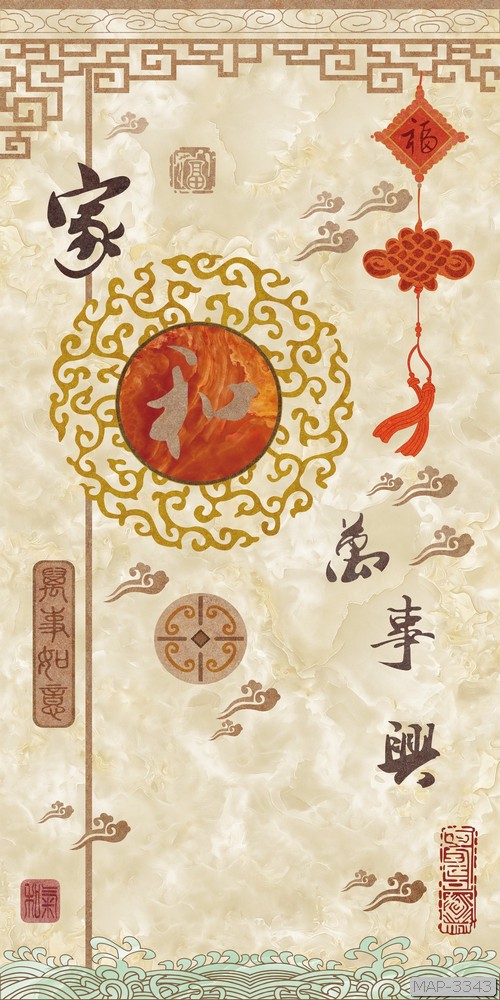 福
家
和
萬
事
興
萬事如意
和氣
MAP-3343